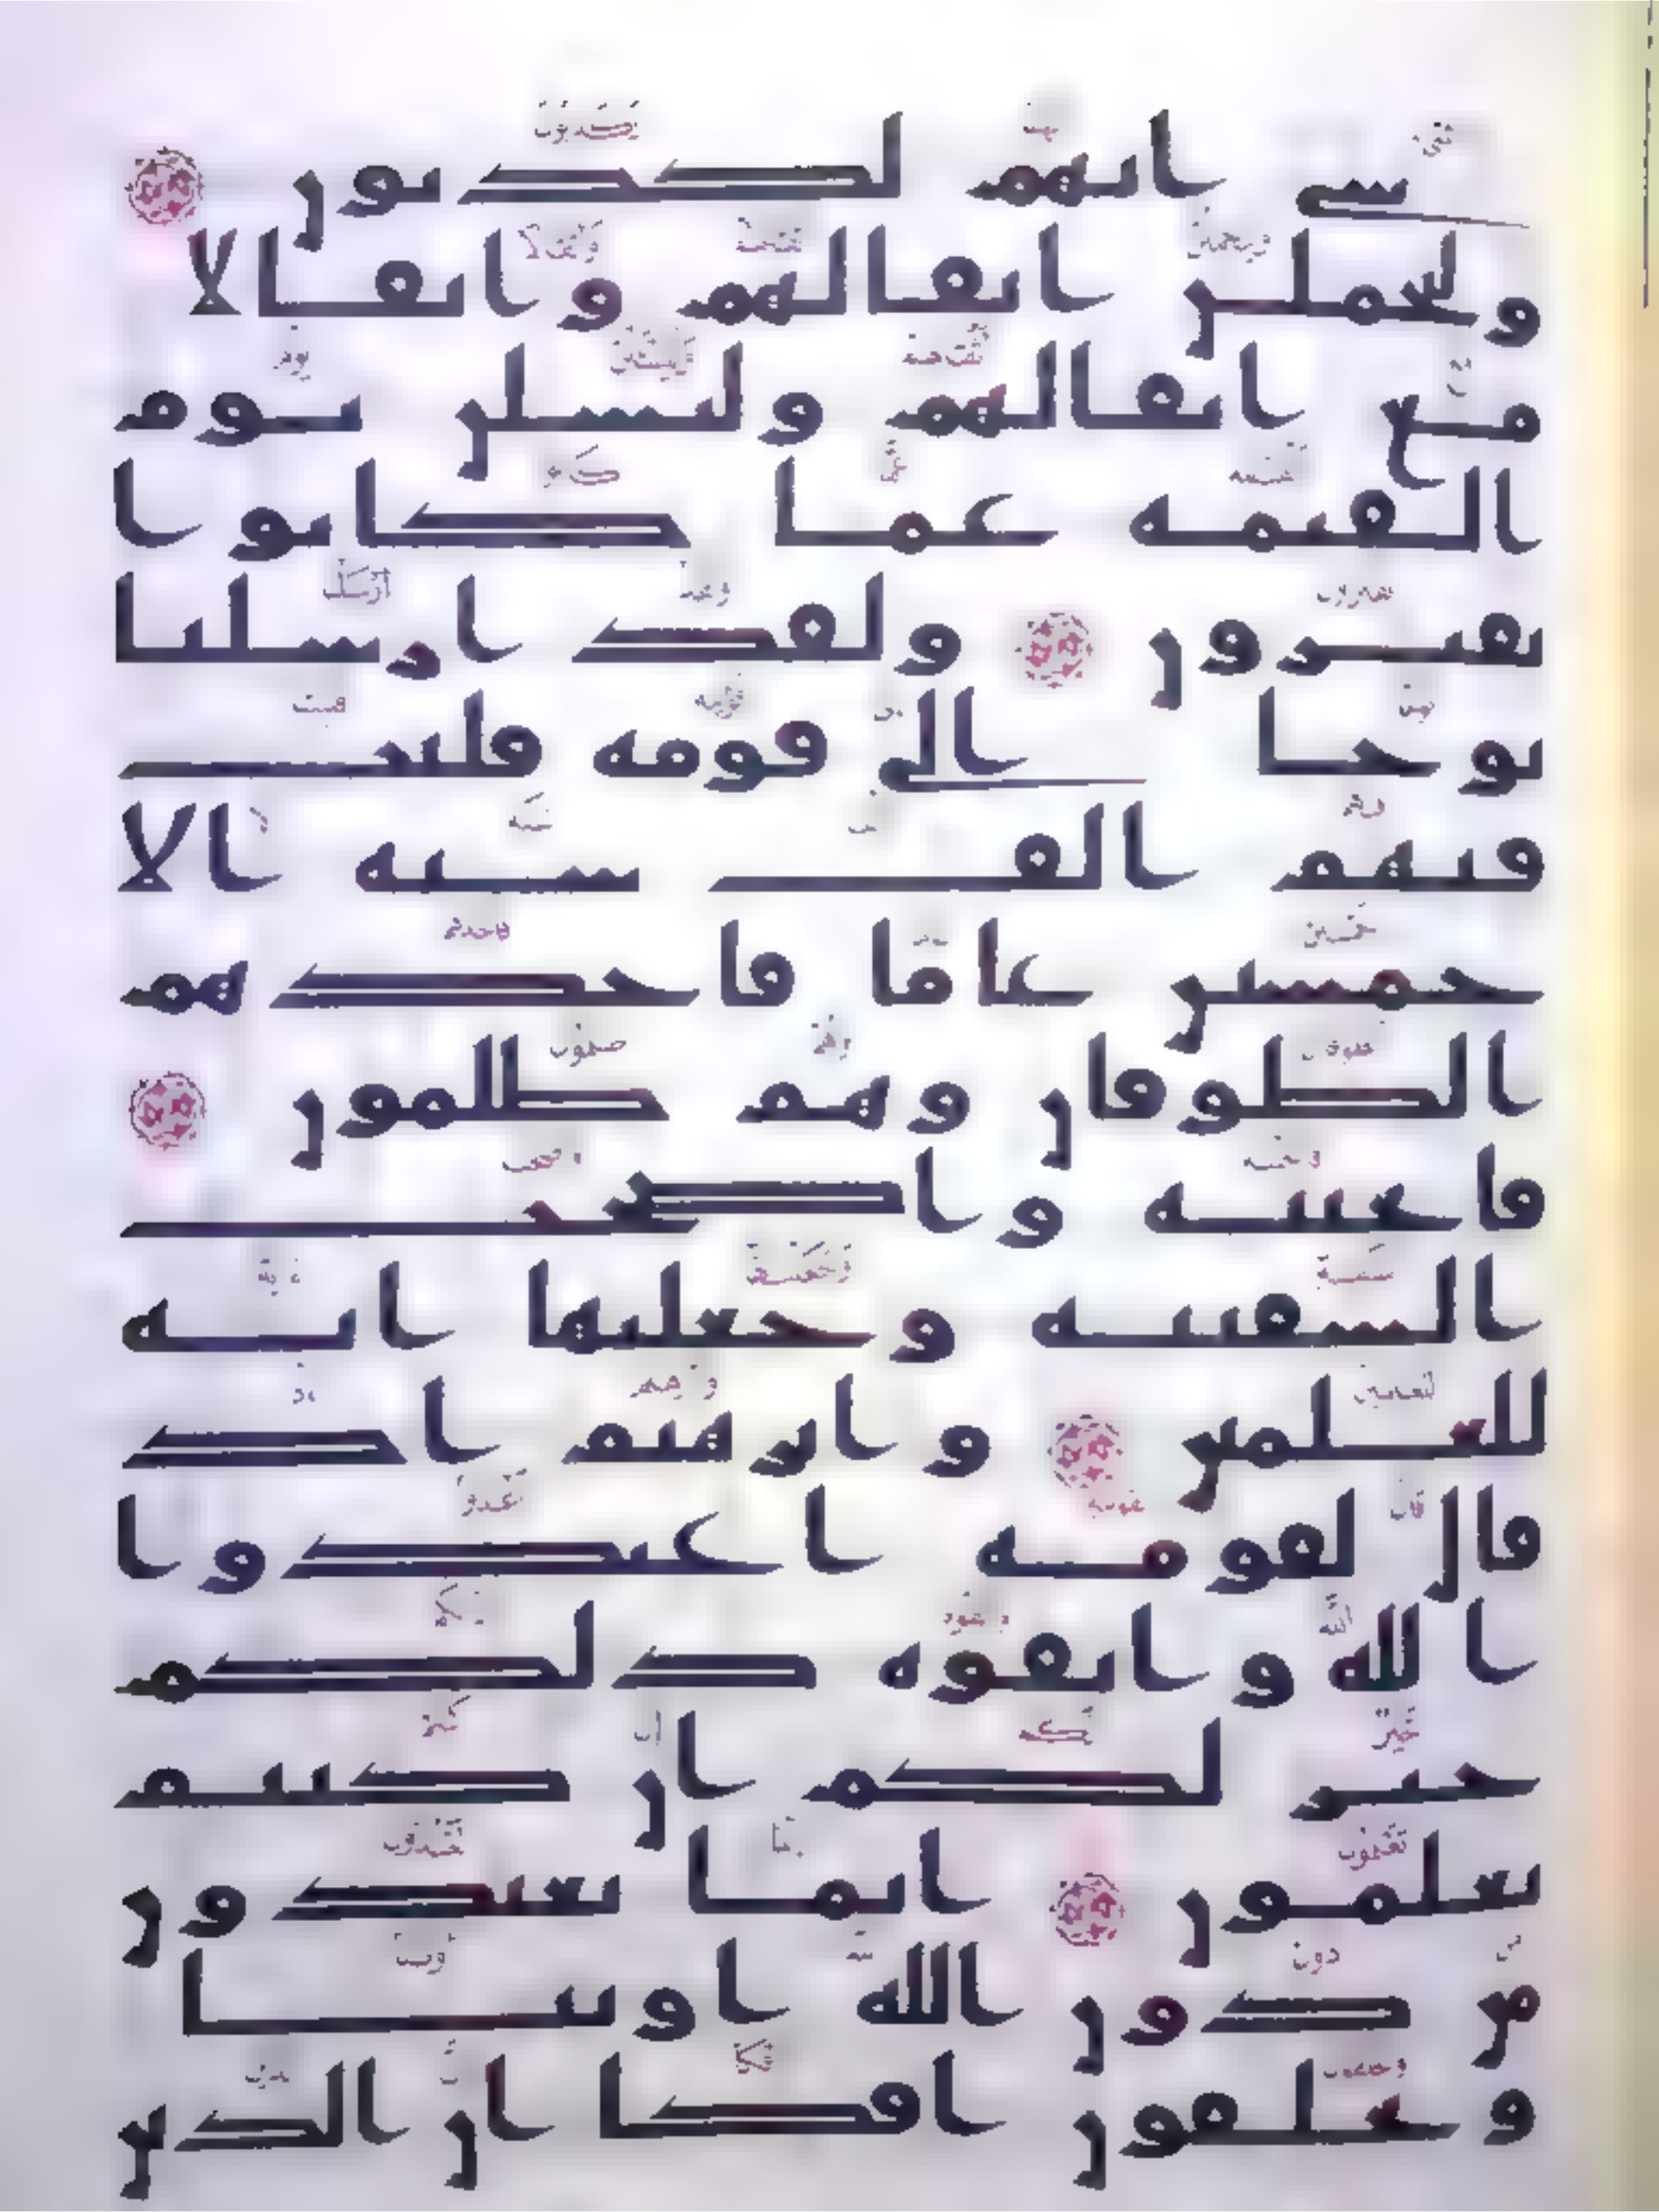 شي انهم لكذبون
وليحملن اثقالهم واثقالا
مع اثقالهم وليسلن يوم
القيمه عما كانوا
يفترون ولقد ارسلنا
نوحا الى قومه فلبث
فيهم الف سنه الا
خمسين عاما فاخذهم
الطوفان وهم ظلمون
فانجينه واصحب
السفينه وجعلنها ايه
للعلمين وابرهيم اذ
قال لقومه اعبدوا
الله واتقوه ذلكم
خير لكم ان كنتم
تعلمون انما تعبدون
من دون الله اوثنا
وتخلقون افكا ان الذين